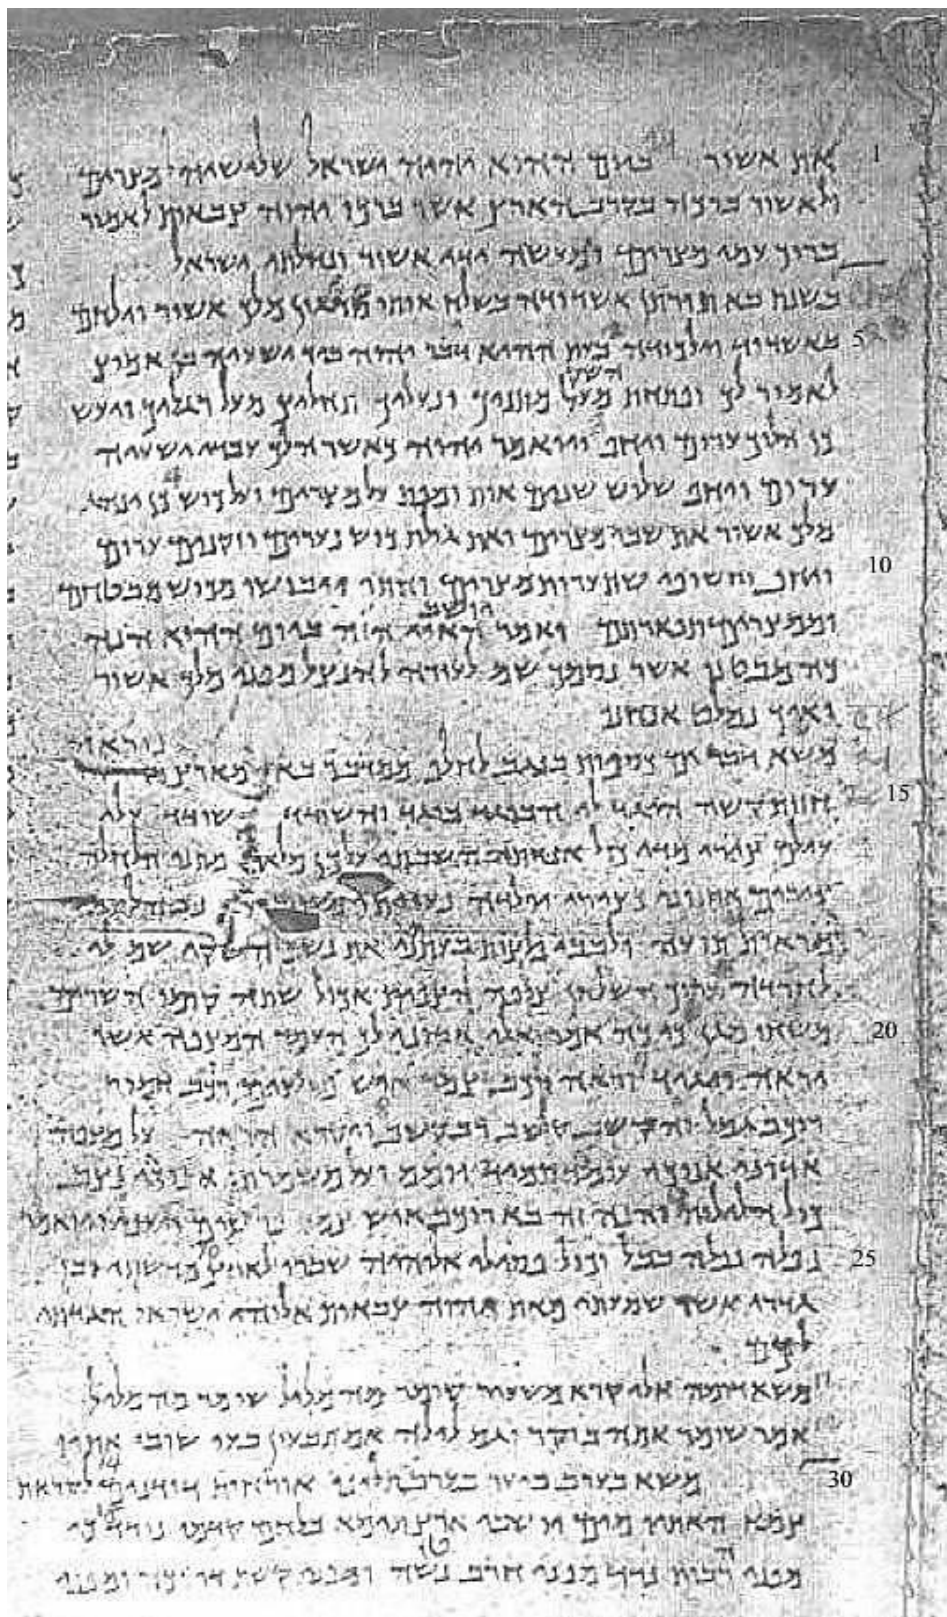 את אשור ביום ההוא יהיה ישראל שלישיה למצרים
ולאשור ברכה בקרב הארץ אשר ברכו יהוה צבאות לאמור
ברוך עמי מצרים ומעשה ידי אשור ונחלתי ישראל
בשנת בא תורתן אשדודה בשלח אותו סרגון מלך אשור וילחם
באשדוד וילכודה בעת ההיא דבר יהוה ביד ישעיה בן אמוץ
לאמור לך ופתחת השק מעל מותניך ונעליך תחלוץ מעל רגליך ויעש
כן הלוך ערום ויחף ויואמר יהוה כאשר הלך עבדי ישעיה
ערום ויחף שלוש שנים אות ומופת על מצרים ועל כוש כן ינהג
מלך אשור את שבי מצרים ואת גולת כוש נערים וזקנים ערום
ויחף וחשופי שת ערות מצרים וחתו ויבושו מכוש מבטחם
וממצרים תפארתם ואמר יושב האי הזה ביום ההוא הנה
כה מבטנו אשר נסמך שם לעזרה להנצל מפני מלך אשור
ואיך נמלט אנחנו
משא דבר ים כסופות בנגב לחלף ממדבר בא מארץ נוראה
חזות קשה הגד לי הבוגד בוגד והשודד שודד עלי
עילם צירי מדי כול אנחתה השבתי על כן מלאו מתני חלחלה
צירים אחזוני כצירי יולדה נעויתי נבהלתי
מראות תועה ולבבי פלצות בעתתני את נשף חשקי שם לי
לחרדה ערוך השלחן צפה הצפית אכול שתה קומו השרים
משחו מגן כי כה אמר אלי אדוני לך העמד המצפה אשר
יראה יגיד וראה רכב צמד איש פרשים רכב חמור
רוכב גמל והקשיב קשב רב קשב ויקרא הראה על מצפה
אדוני אנוכי עומד תמיד יומם ועל משמרתי אנוכי נצב
כול הלילה והנה זה בא רוכב איש צמד פרשים ויען ויואמר
נפלה נפלה בבל וכול פסילי אלוהיה שברו לארץ מדשתי ובן
גדרי אשר שמעתי מאת יהוה צבאות אלוהי ישראל הגדתי
לכם
משא דומה אלי קרא משעיר שומר מה מליל שומר מה מליל
אמר שומר אתה בוקר וגם לילה אם תבעון בעו שובו אתיו
משא בערב ביער בערב תלינו אורחות דודנים לקראת
צמא האתיו מים ישבי ארץ תימא בלחם קדמו נודד כי
מפני רבות נדד מפני חרב נטשה ומפני קשת דרוכה ומפני
1
5
10
15
20
25
30